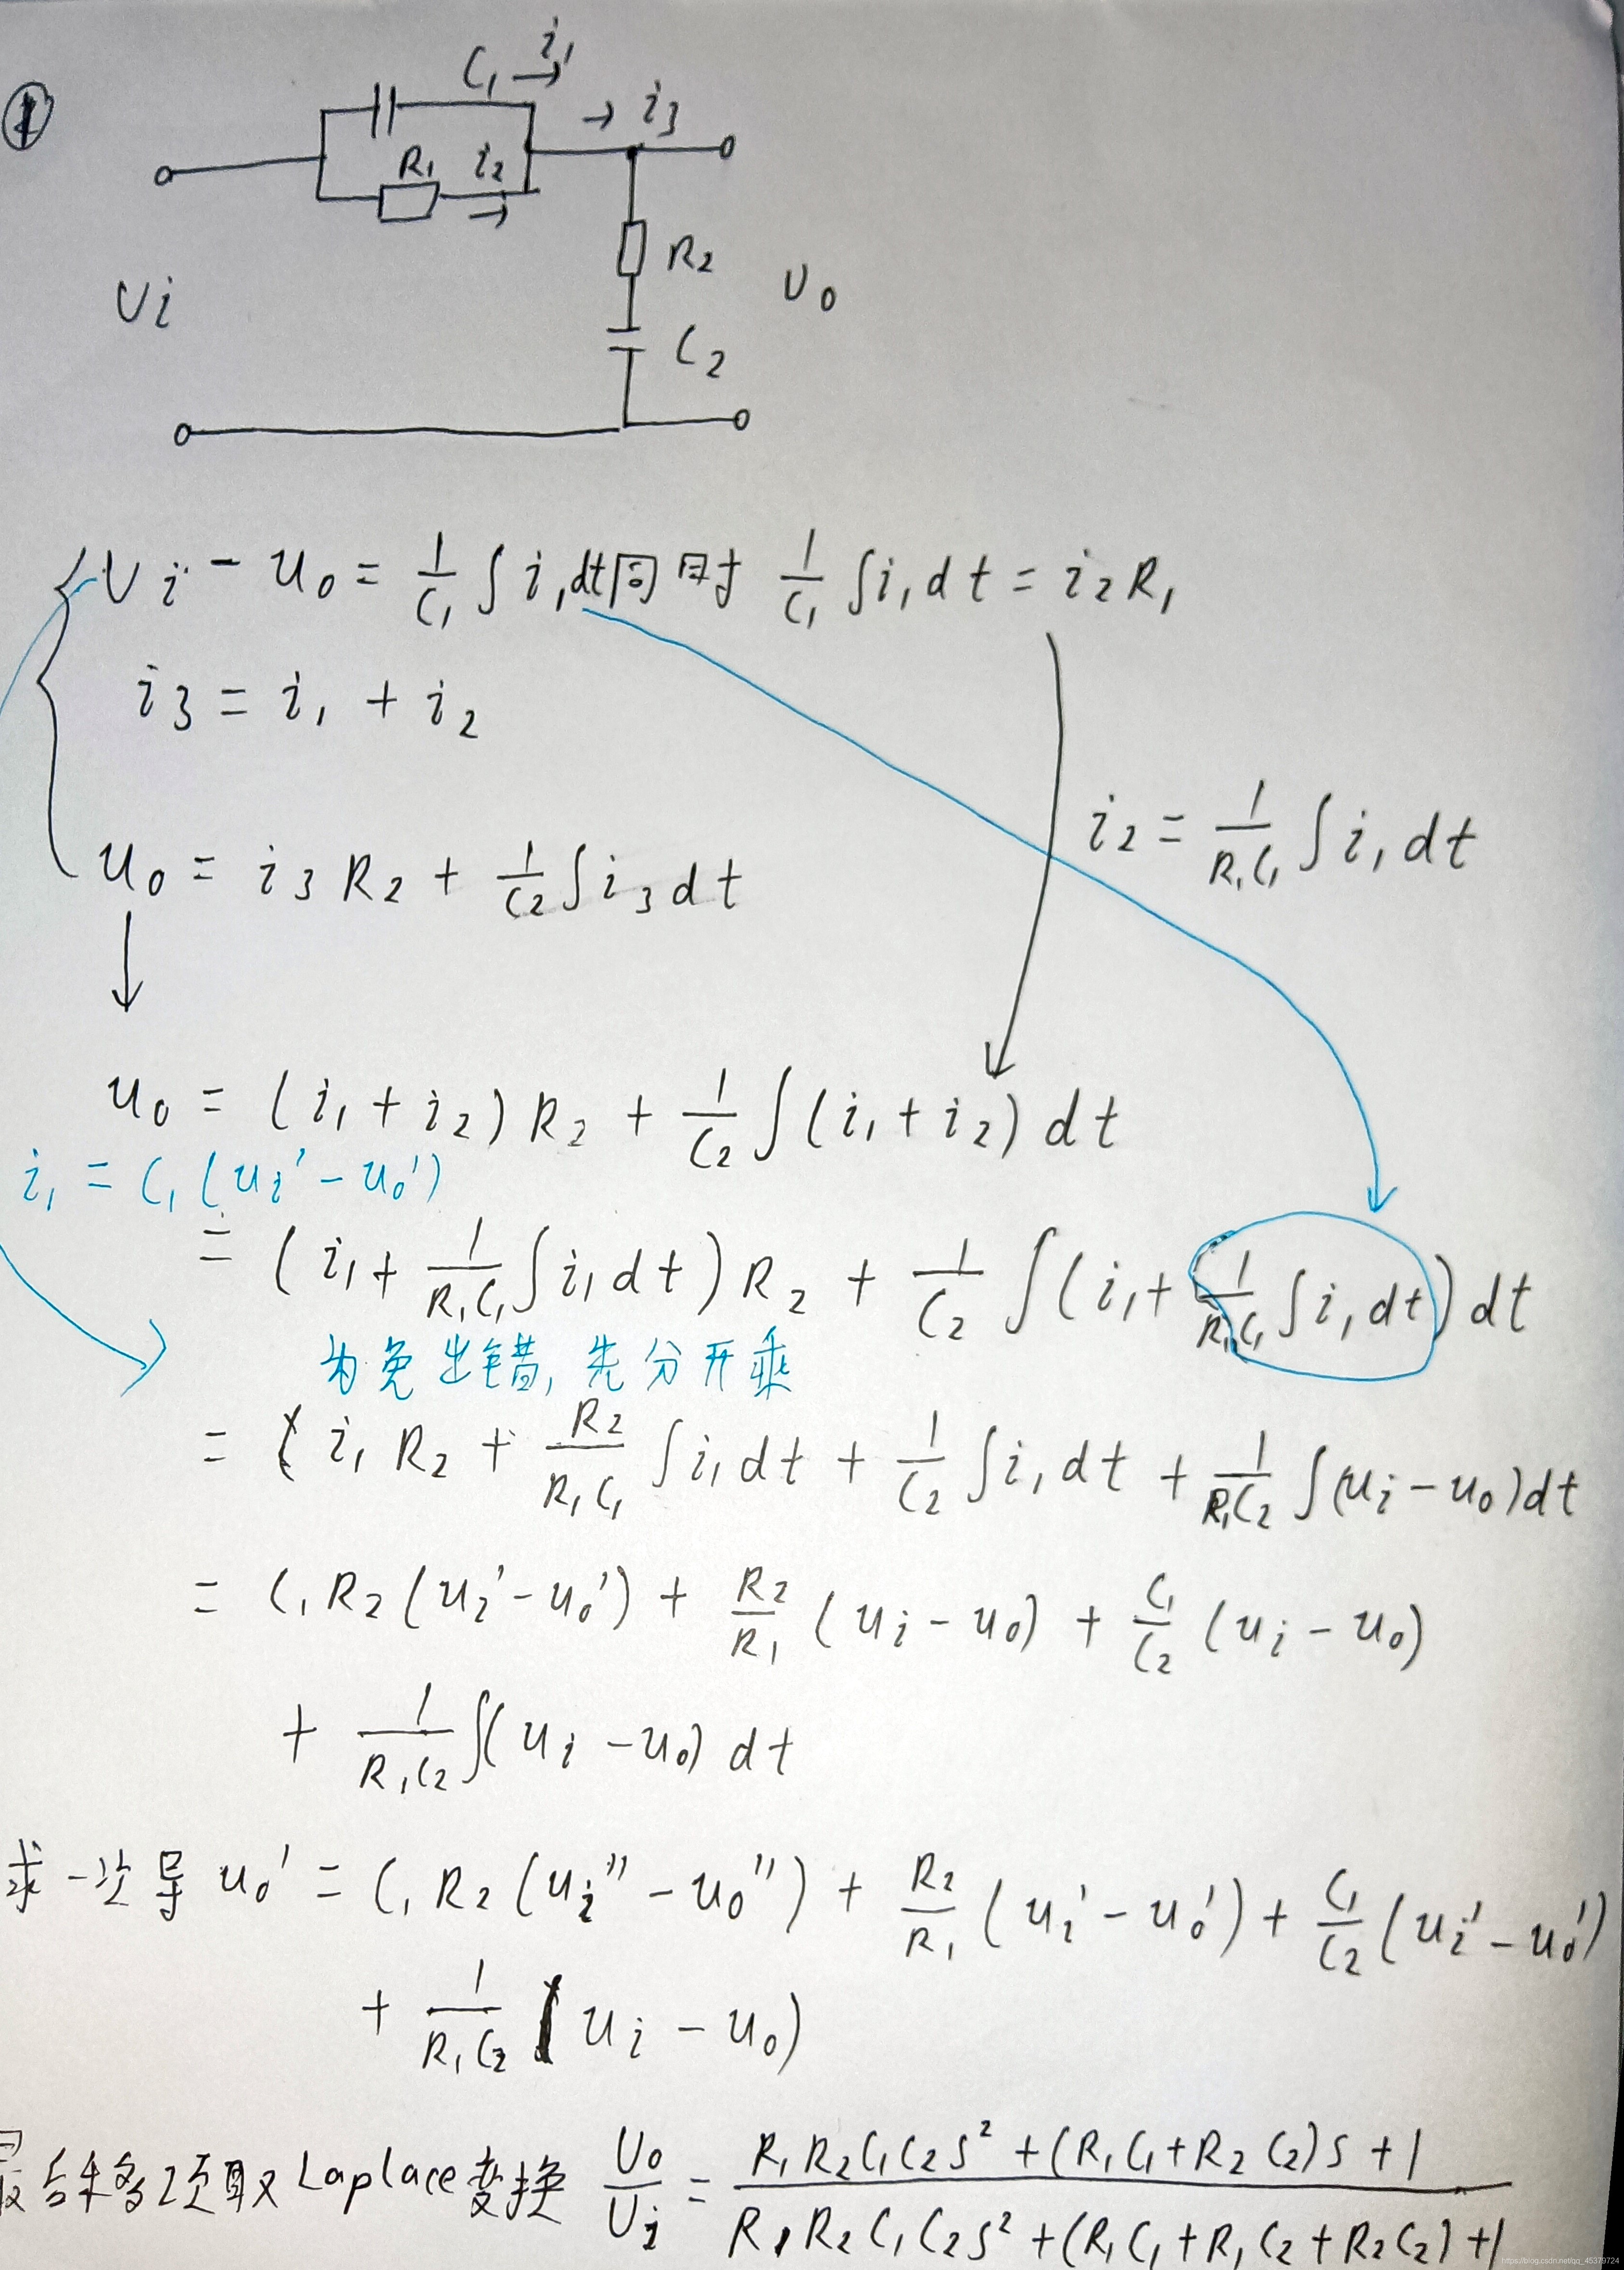 ①
C₁ → i₁
→ i₃
R₁ i₂ →
R₂
Ui
U₀
C₂
Ui - u₀ = 1/C₁ ∫i₁dt 同时 1/C₁ ∫i₁dt = i₂R₁
i₃ = i₁ + i₂
i₂ = 1/R₁C₁ ∫i₁dt
u₀ = i₃R₂ + 1/C₂ ∫i₃dt
u₀ = (i₁ + i₂)R₂ + 1/C₂ ∫(i₁ + i₂)dt
i₁ = C₁(ui' - u₀')
= (i₁ + 1/R₁C₁ ∫i₁dt)R₂ + 1/C₂ ∫(i₁ + 1/R₁C₁ ∫i₁dt)dt
为免出错, 先分开乘
= i₁R₂ + R₂/R₁C₁ ∫i₁dt + 1/C₂ ∫i₁dt + 1/R₁C₂ ∫(ui - u₀)dt
= C₁R₂(ui' - u₀') + R₂/R₁ (ui - u₀) + C₁/C₂ (ui - u₀)
+ 1/R₁C₂ ∫(ui - u₀)dt
求一次导 u₀' = C₁R₂(ui'' - u₀'') + R₂/R₁ (ui' - u₀') + C₁/C₂ (ui' - u₀')
+ 1/R₁C₂ (ui - u₀)
最后各项取Laplace变换 U₀/Ui = R₁R₂C₁C₂s² + (R₁C₁+R₂C₂)s + 1 / R₁R₂C₁C₂s² + (R₁C₁+R₁C₂+R₂C₂) + 1
https://blog.csdn.net/qq_45379724